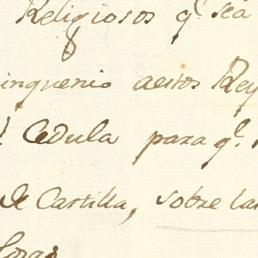 Religiosos q.e sea
inquenio aestos Rey
l Cedula para q.e
de Castilla, sobre las